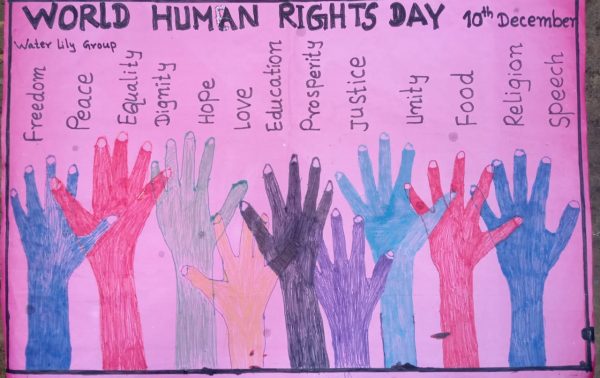 WORLD HUMAN RIGHTS DAY 10th December
Water Lily Group
Freedom
Peace
Equality
Dignity
Hope
Love
Education
Prosperity
Justice
Unity
Food
Religion
Speech